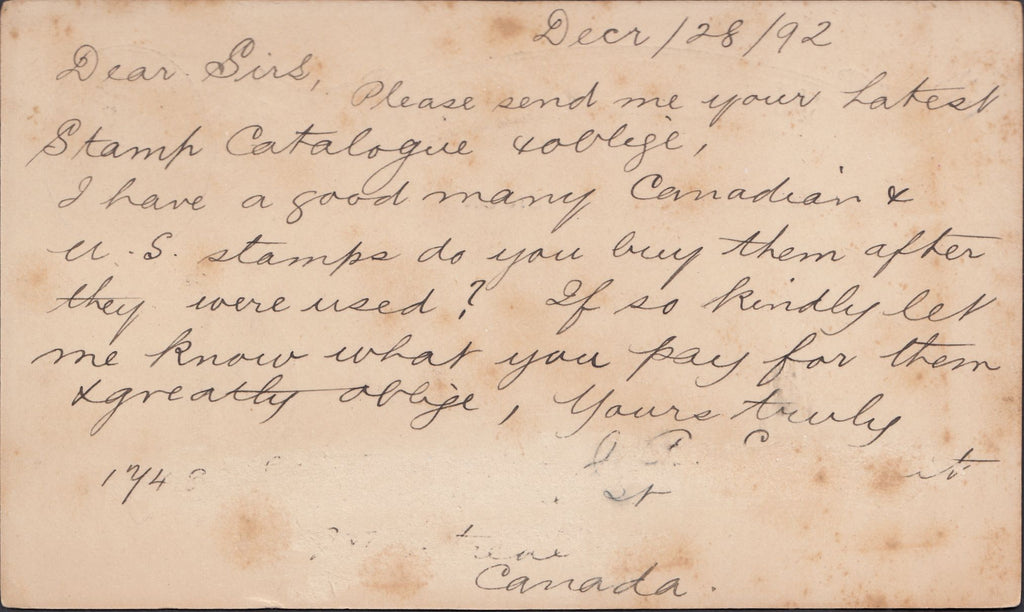 Decr/28/92
Dear Sirs,
Please send me your Latest
Stamp Catalogue & oblige,
I have a good many Canadian &
U.S. stamps do you buy them after
they were used? If so kindly let
me know what you pay for them
& greatly oblige, Yours truly
174
St
Canada.